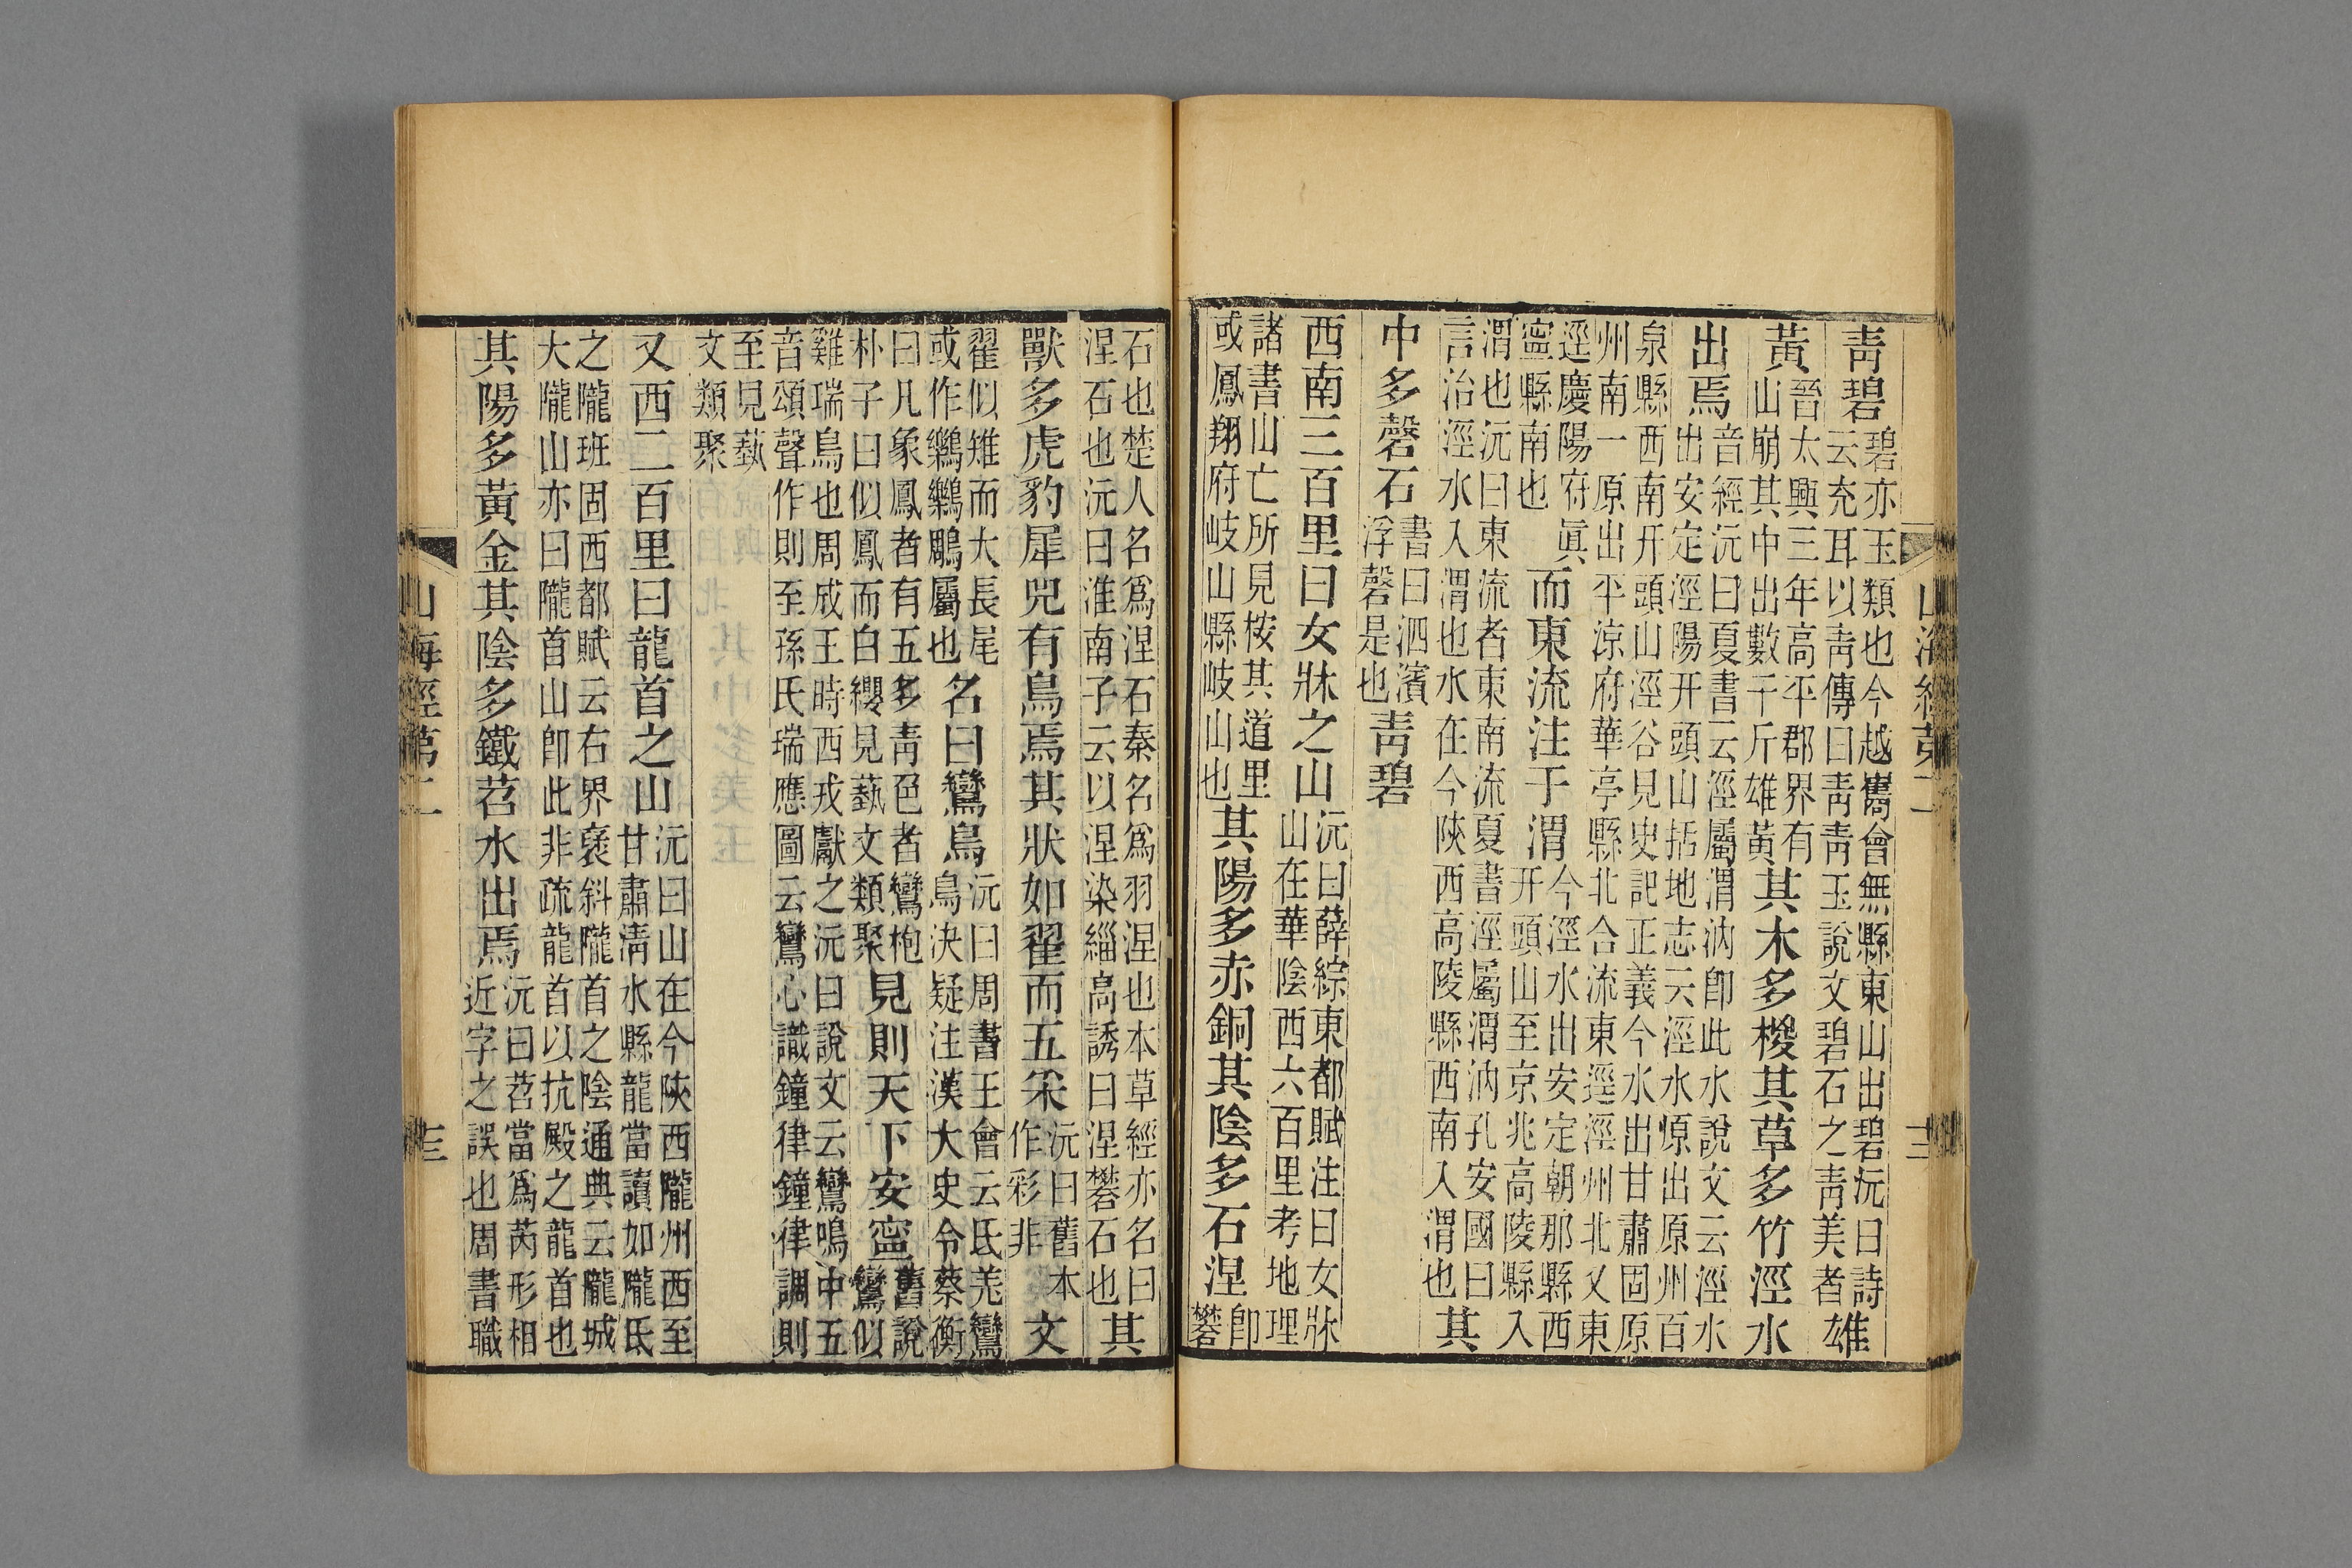 青碧碧亦玉類也今越巂會無縣東山出碧沅曰詩云充耳以青傳曰青青玉說文碧石之青美者雄
黃晉太興三年高平郡界有山崩其中出數千斤雄黃其木多椶其草多竹涇水
出焉音經沅曰夏書云涇屬渭汭卽此水說文云涇水出安定涇陽开頭山括地志云涇水原出原州百
泉縣西南开頭山涇谷見史記正義今水出甘肅固原州南一原出平涼府華亭縣北合流東逕涇州北又東
逕慶陽府眞寧縣南也而東流注于渭今涇水出安定朝那縣西开頭山至京兆高陵縣入
渭也沅曰東流者東南流夏書涇屬渭汭孔安國曰言治涇水入渭也水在今陝西高陵縣西南入渭也其
中多磬石書曰泗濱浮磬是也青碧
西南三百里曰女牀之山沅曰薛綜東都賦注曰女牀山在華陰西六百里考地理
諸書山亡所見桉其道里或鳳翔府岐山縣岐山也其陽多赤銅其陰多石涅卽礬
石也楚人名爲涅石秦名爲羽涅也本草經亦名曰涅石也沅曰淮南子云以涅染緇高誘曰涅礬石也其
獸多虎豹犀兕有鳥焉其狀如翟而五采沅曰舊本作彩非文
翟似雉而大長尾或作鸐鸐鵰屬也名曰鸞鳥沅曰周書王會云氐羌鸞鳥決疑注漢大史令蔡衡
曰凡象鳳者有五多青色者鸞枹朴子曰似鳳而白纓見藝文類聚見則天下安寧舊說鸞似
雞瑞鳥也周成王時西戎獻之沅曰說文云鸞鳴中五音頌聲作則至孫氏瑞應圖云鸞心識鐘律鐘律調則
至見藝文類聚
又西二百里曰龍首之山沅曰山在今陝西隴州西至甘肅淸水縣龍當讀如隴氐
之隴班固西都賦云右界褒斜隴首之陰通典云隴城大隴山亦曰隴首山卽此非疏龍首以抗殿之龍首也
其陽多黃金其陰多鐵苕水出焉沅曰苕當爲芮形相近字之誤也周書職
山海經第二
十三